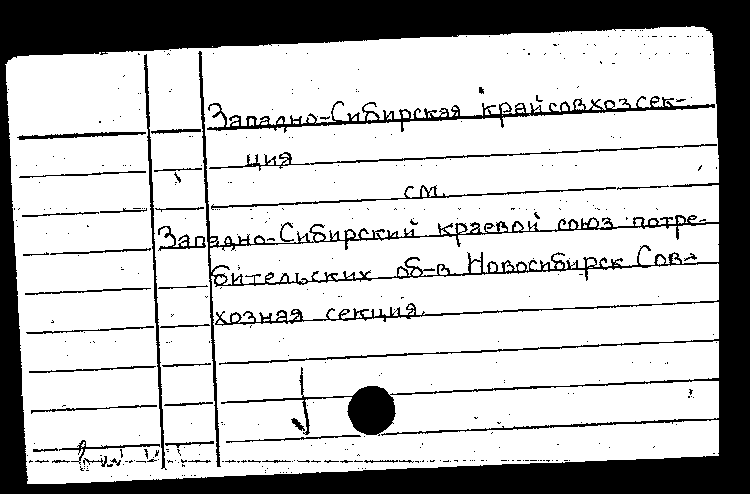 Западно-Сибирская крайсовхозсек-
ция
см.
Западно-Сибирский краевой союз потре-
бительских об-в Новосибирск Сов-
хозная секция.